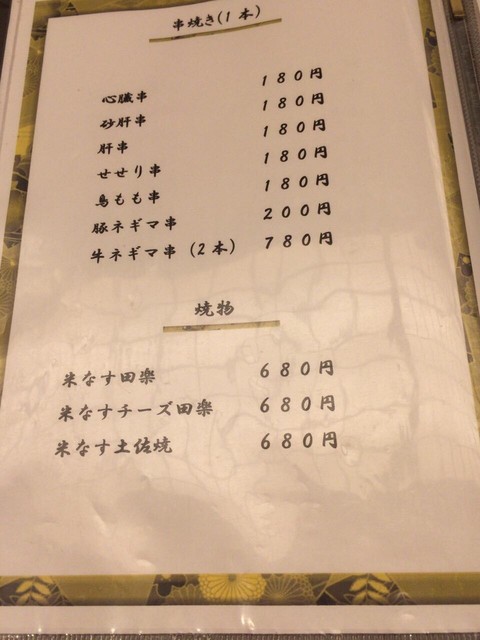 串焼き(1本)
心臓串 180円
砂肝串 180円
肝串 180円
せせり串 180円
鳥もも串 180円
豚ネギマ串 200円
牛ネギマ串 (2本) 780円
焼物
米なす田楽 680円
米なすチーズ田楽 680円
米なす土佐焼 680円